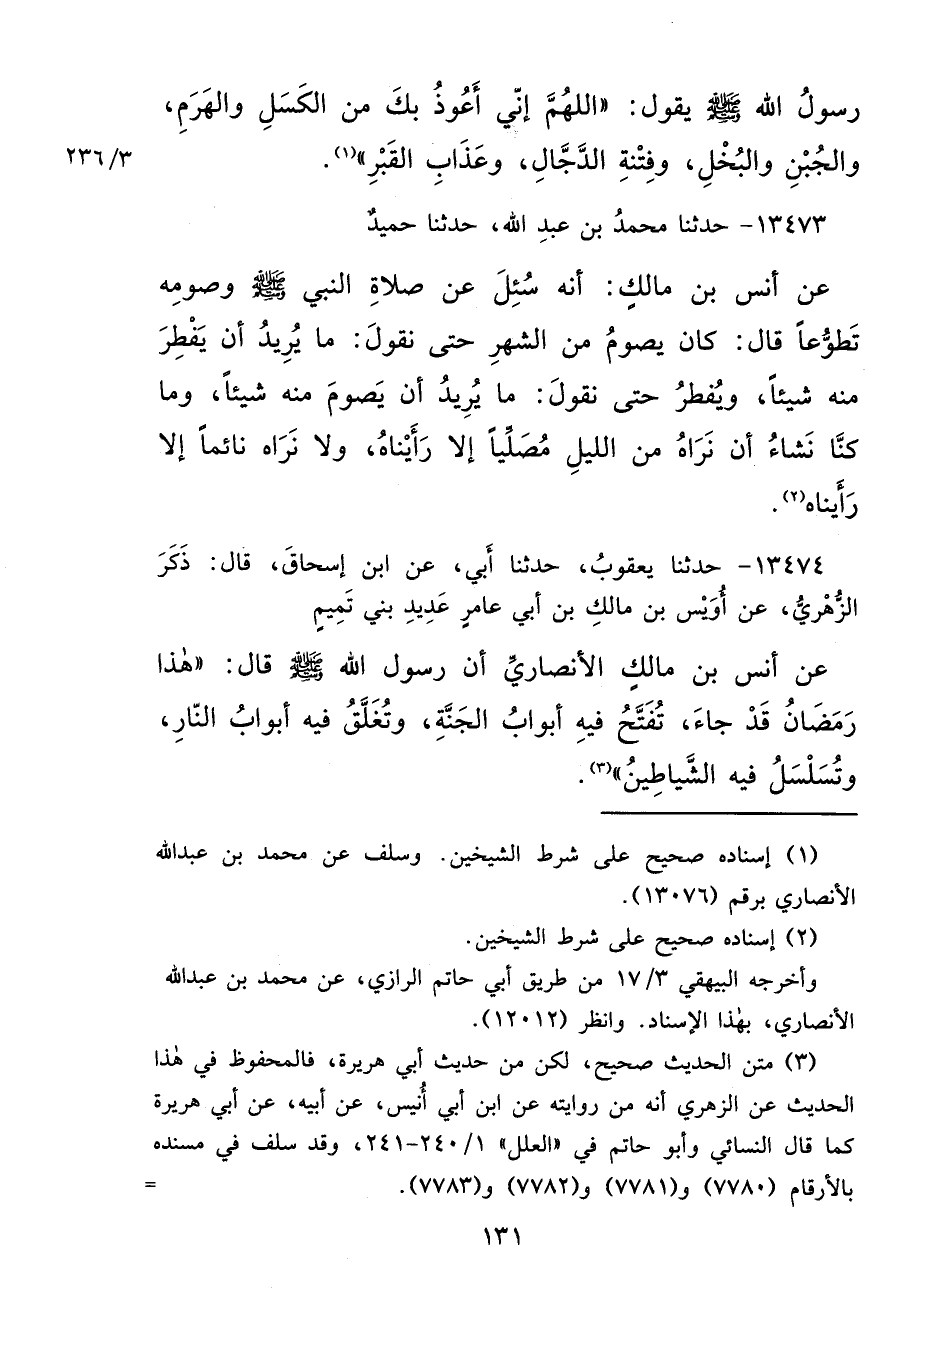 رسولُ الله ﷺ يقول: «اللهُمَّ إنِّي أَعُوذُ بكَ من الكَسَلِ والهَرَمِ،
والجُبْنِ والبُخْلِ، وفِتْنةِ الدَّجَّالِ، وعَذَابِ القَبْرِ»(١). ٢٣٦/٣
١٣٤٧٣- حدثنا محمدُ بن عبدِ الله، حدثنا حميدٌ
عن أنس بن مالكٍ: أنه سُئِلَ عن صلاةِ النبي ﷺ وصومِه
تَطوُّعاً قال: كان يصومُ من الشهرِ حتى نقولَ: ما يُرِيدُ أن يَفْطِرَ
منه شيئاً، ويُفطرُ حتى نقولَ: ما يُرِيدُ أن يَصومَ منه شيئاً، وما
كنَّا نَشاءُ أن نَرَاهُ من الليلِ مُصَلِّياً إلا رَأَيْناهُ، ولا نَرَاه نائماً إلا
رَأَيناه(٢).
١٣٤٧٤- حدثنا يعقوبُ، حدثنا أَبي، عن ابن إسحاقَ، قال: ذَكَرَ
الزُّهْريُّ، عن أُوَيْس بن مالكِ بن أبي عامرٍ عَدِيدِ بني تَمِيمٍ
عن أنس بن مالكٍ الأنصاريِّ أن رسول الله ﷺ قال: «هٰذا
رَمَضَانُ قَدْ جاءَ، تُفَتَّحُ فيهِ أبوابُ الجَنَّةِ، وتُغَلَّقُ فيه أبوابُ النّارِ،
وتُسَلْسَلُ فيه الشَّياطِينُ»(٣).
(١) إسناده صحيح على شرط الشيخين. وسلف عن محمد بن عبدالله
الأنصاري برقم (١٣٠٧٦).
(٢) إسناده صحيح على شرط الشيخين.
وأخرجه البيهقي ١٧/٣ من طريق أبي حاتم الرازي، عن محمد بن عبدالله
الأنصاري، بهٰذا الإسناد. وانظر (١٢٠١٢).
(٣) متن الحديث صحيح، لكن من حديث أبي هريرة، فالمحفوظ في هٰذا
الحديث عن الزهري أنه من روايته عن ابن أبي أُنيس، عن أبيه، عن أبي هريرة
كما قال النسائي وأبو حاتم في «العلل» ٢٤٠/١-٢٤١، وقد سلف في مسنده
بالأرقام (٧٧٨٠) و(٧٧٨١) و(٧٧٨٢) و(٧٧٨٣). =
١٣١